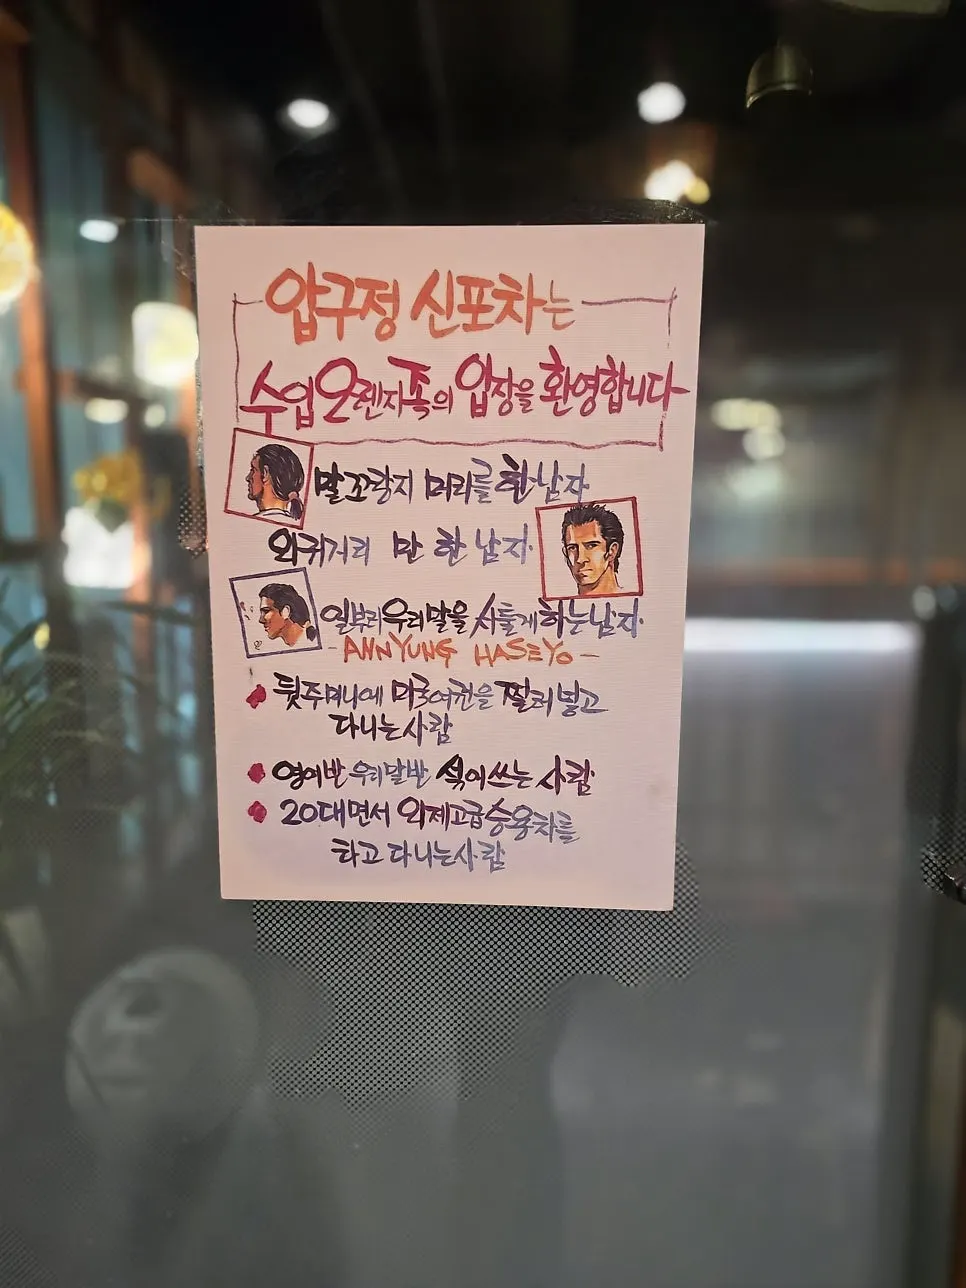 압구정 신포차는
수입오렌지족의 입장을 환영합니다
말꼬랑지 머리를 한 남자
와귀거리 만 한 남자.
일부러 우리말을 서툴게 하는 남자.
- ANNYUNG HASEYO -
뒷주머니에 미국여권을 찔러 넣고
다니는 사람
영어반 우리말반 섞어쓰는 사람
20대면서 외제고급승용차를
타고 다니는 사람